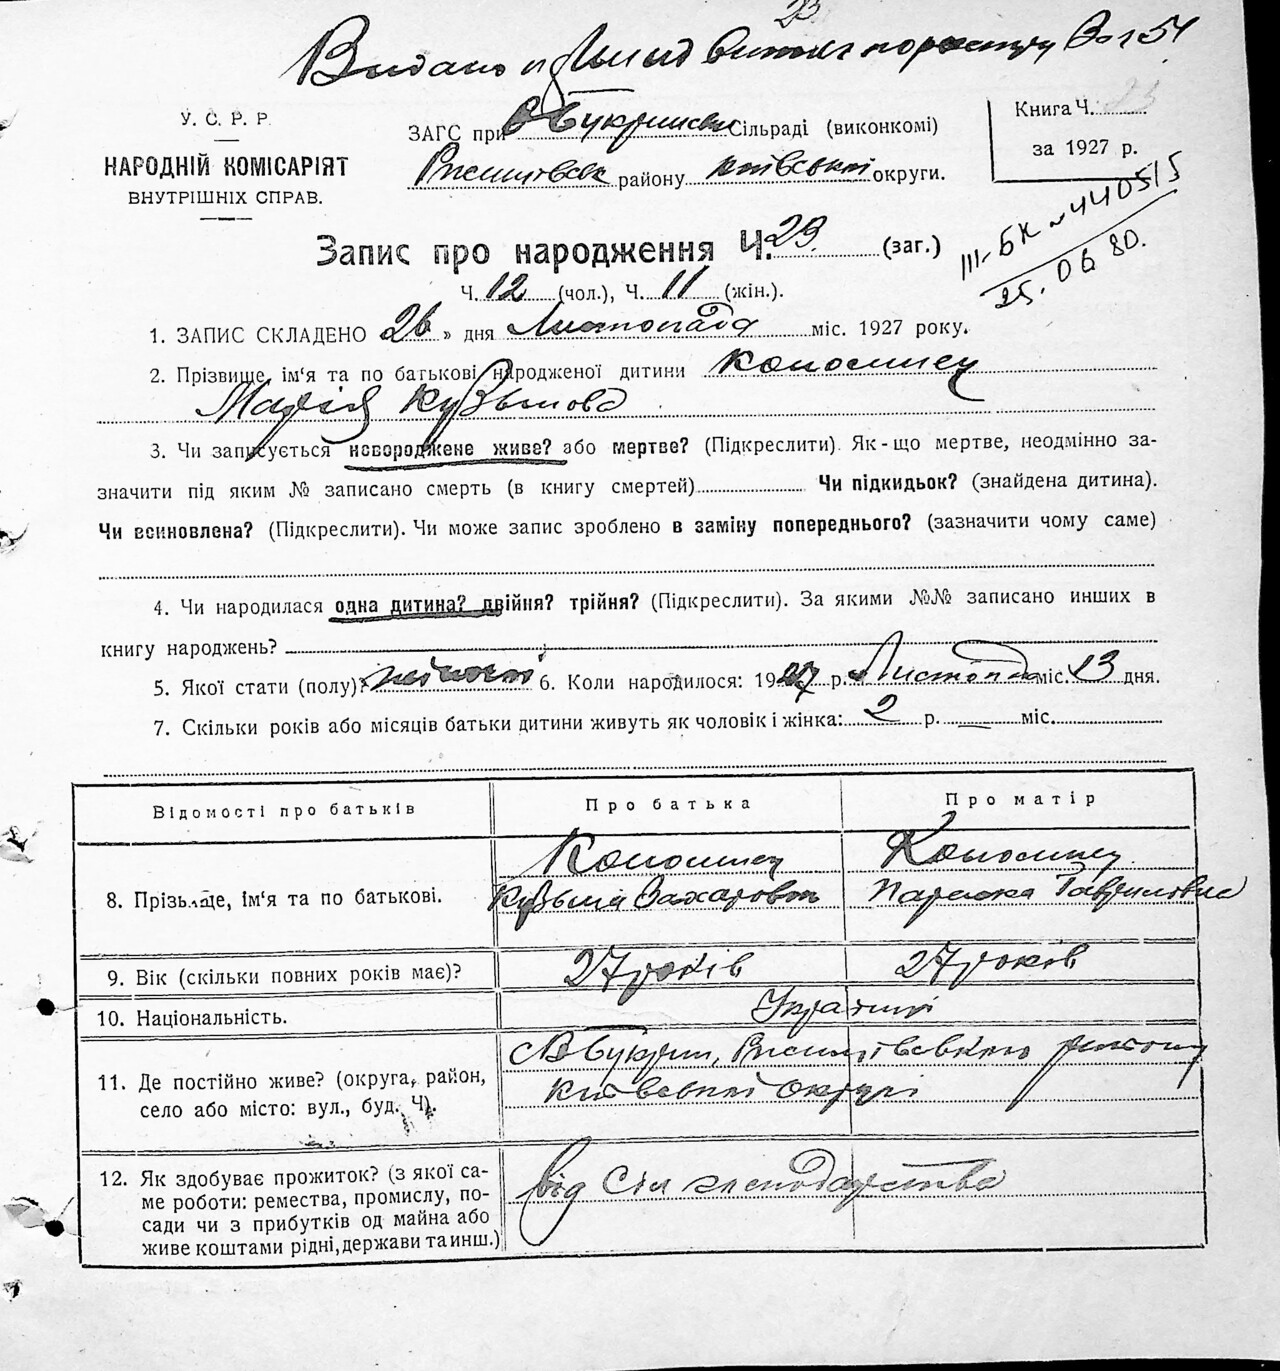 23
Видано витяг по реєстру 3а 54
У. С. Р. Р.
НАРОДНІЙ КОМІСАРІЯТ
ВНУТРІШНІХ СПРАВ.
ЗАГС при Сільраді (виконкомі)
району Київської округи.
Книга Ч. 23
за 1927 р.
III-БК № 440515
25.06.80.
Запис про народження Ч. 23. (заг.)
Ч. 12 (чол.), Ч. 11 (жін.).
1. ЗАПИС СКЛАДЕНО 26 » дня Листопада міс. 1927 року.
2. Прізвище, ім'я та по батькові народженої дитини
Марія Кузьмова
3. Чи записується новороджене живе? або мертве? (Підкреслити). Як-що мертве, неодмінно за-
значити під яким № записано смерть (в книгу смертей) Чи підкидьок? (знайдена дитина).
Чи всиновлена? (Підкреслити). Чи може запис зроблено в заміну попереднього? (зазначити чому саме)
4. Чи народилася одна дитина? двійня? трійня? (Підкреслити). За якими №№ записано инших в
книгу народжень?
5. Якої стати (полу)? жіночої 6. Коли народилося: 1927 р. Листопада міс. 13 дня.
7. Скільки років або місяців батьки дитини живуть як чоловік і жінка: 2 р. — міс.
Відомості про батьків
Про батька
Про матір
8. Прізвще, ім'я та по батькові.
Кузьма Захарович
Параска Гавриловна
9. Вік (скільки повних років має)?
27 років
27 років
10. Національність.
Українці
11. Де постійно живе? (округа, район,
село або місто: вул., буд. Ч).
району
Київської округі
12. Як здобуває прожиток? (з якої са-
ме роботи: ремества, промислу, по-
сади чи з прибутків од майна або
живе коштами рідні, держави та инш.)
від Сіл господарства